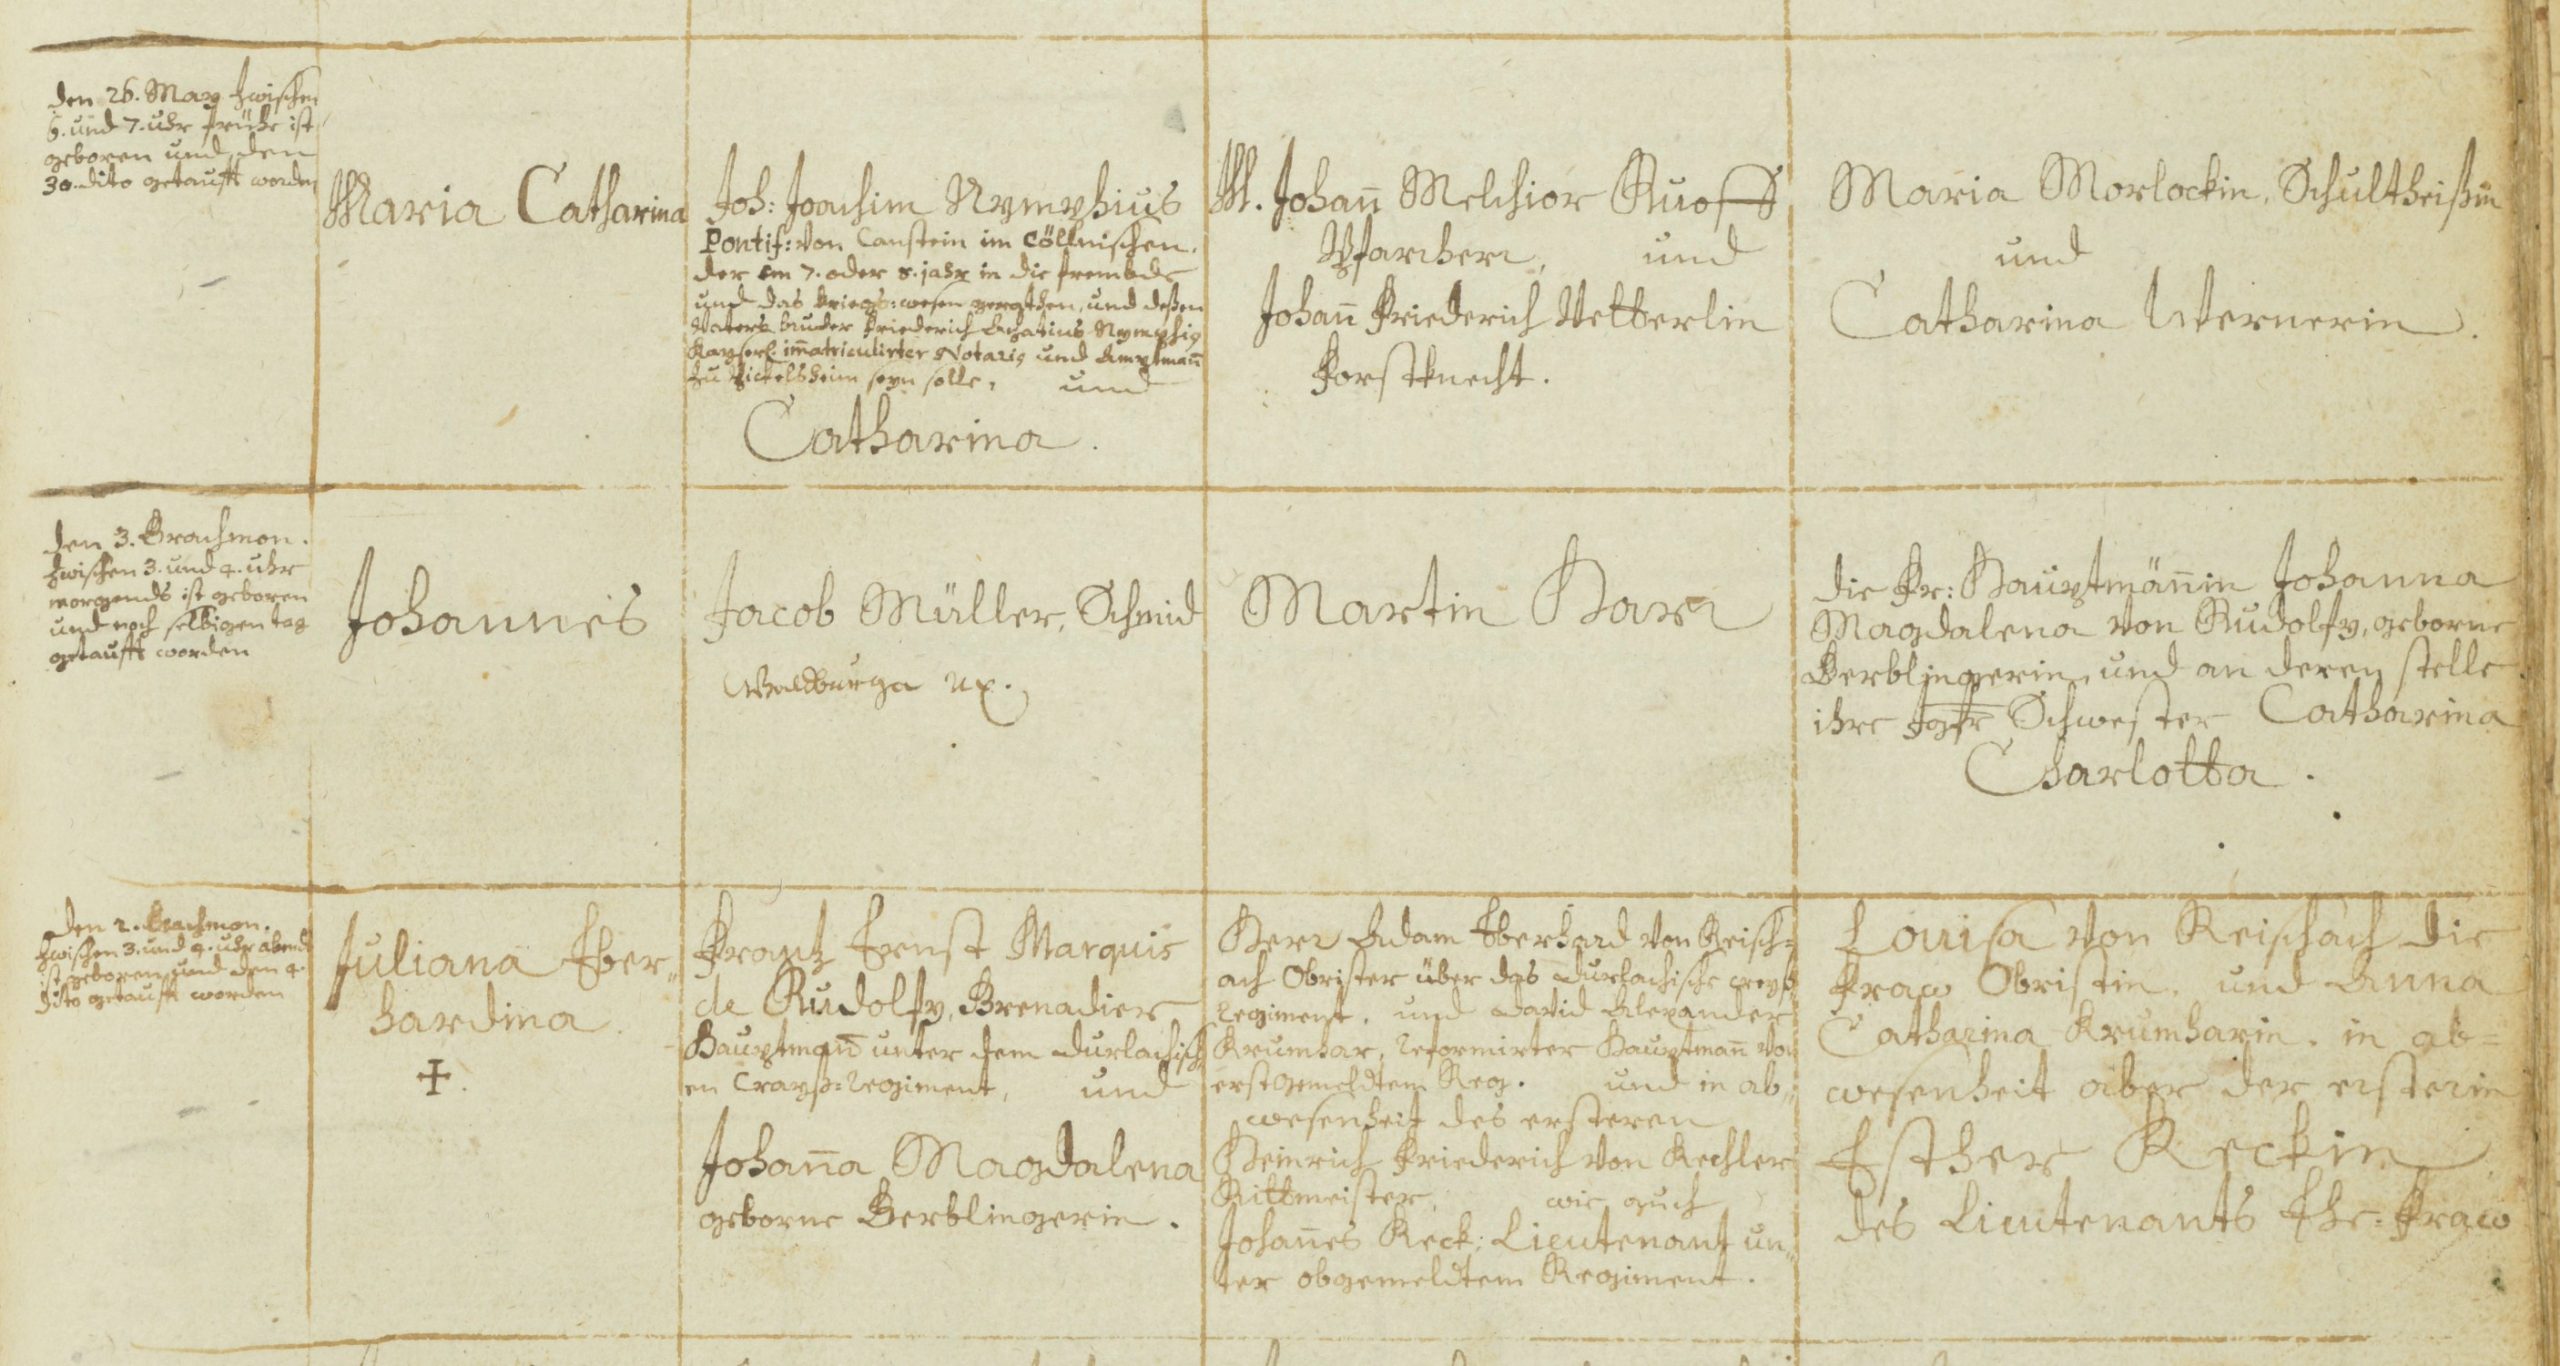 den 26. May zwischen
6. und 7. uhr frühe ist
geboren und den
30. dito getaufft worden
Maria Catharina
Joh: Joachim Nymphius
Pontif: von Canstein im Cöllnischen.
der im 7. oder 8. jahr in die frembde
und das kriegs:wesen gerathen, und deßen
Vaters bruder Friederich Achatius Nymphig
Kayserl. im̄atriculirter Notarig und Amptman̄
zu seyn solle, und
Catharina.
M. Johan̄ Melchior Ruoff
Pfarcherr, und
Johan̄ Friederich Vetterlin
Forstknecht.
Maria Morlockin, Schultheißin
und
Catharina Wernerin.
den 3. Brachmon.
zwischen 3. und 4. uhr
morgends ist geboren
und noch selbigen tag
getaufft worden
Johannes
Jacob Müller, Schmid
Waldburga ux.
Martin Harr
die Fr: Hauptmän̄in Johanna
Magdalena von Rudolfy, geborne
Berblingerin, und an deren stelle
ihre Jgfr Schwester Catharina
Charlotta.
den 2. Brachmon.
zwischen 3. und 4. uhr abends
ist geboren und den 4.
dito getaufft worden
Juliana Eber„
hardina.
✠.
Frantz Ernst Marquis
de Rudolfy, Grenadier
Hauptman̄ unter dem Durlachisch„
en Crayß=regiment, und
Johan̄a Magdalena
geborne Berblingerin.
Herr Adam Eberhard von Reisch=
ach Obrister über das Durlachische creyß
regiment, und David Alexander
Krumhar, reformirter Hauptman̄ von
erstgemeldtem Reg. und in ab„
wesenheit des ersteren
Heinrich Friederich von Kechler
Rittmeister, wie auch
Johan̄es Keck, Lieutenant un„
ter obgemeldtem Regiment.
Louisa von Reischach die
Fraw Obristin, und Anna
Catharina Krumharin. in ab=
wesenheit aber der ersterin
Esther Keckin
des Lieutenants Ehe=Fraw